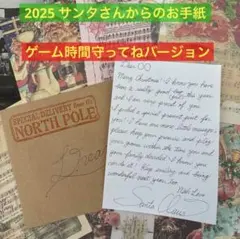 2025 サンタさんからのお手紙
ゲーム時間守ってねバージョン
Dear 〇〇
Merry Christmas! I know you have
been a really good boy this year
and I am very proud of you.
I picked a special present just for
you! I have one more little message:
please keep your promise and play
your game within the time you and
your family decided. I know you
can do it! Keep smiling and have a
wonderful next year too.
With Love
Santa Claus
SPECIAL DELIVERY from the
NORTH POLE